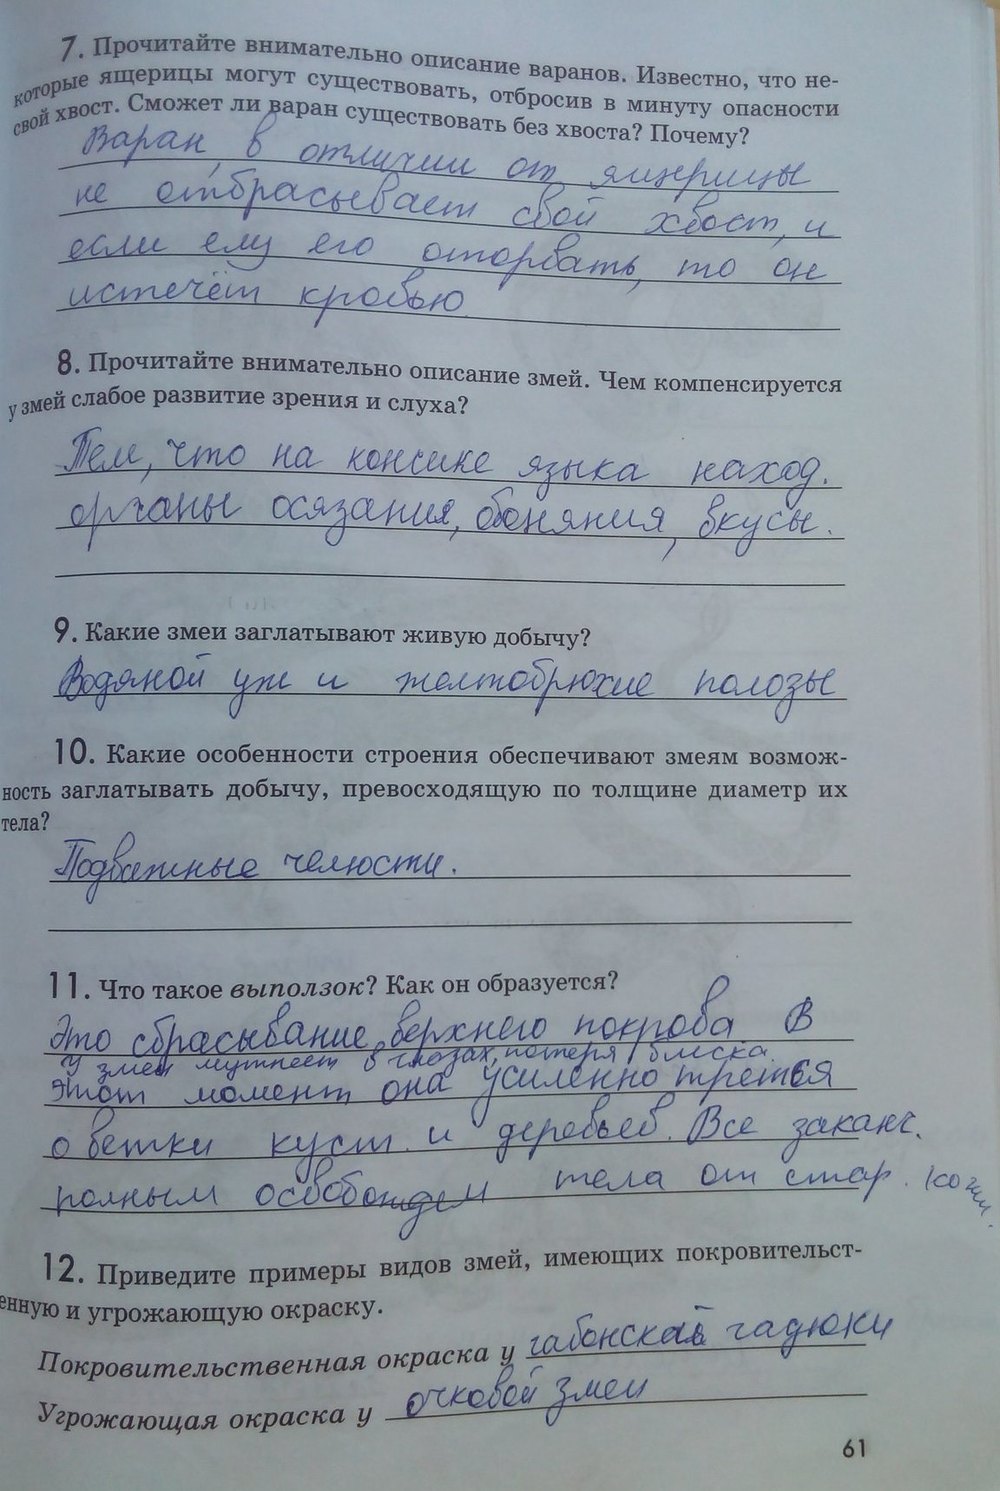 7. Прочитайте внимательно описание варанов. Известно, что не-
которые ящерицы могут существовать, отбросив в минуту опасности
свой хвост. Сможет ли варан существовать без хвоста? Почему?
Варан, в отличии от ящерицы
не отбрасывает свой хвост, и
если ему его оторвать, то он
истечёт кровью.
8. Прочитайте внимательно описание змей. Чем компенсируется
у змей слабое развитие зрения и слуха?
Тем, что на кончике языка наход.
органы осязания, обоняния, вкусы.
9. Какие змеи заглатывают живую добычу?
Водяной уж и желтобрюхие полозы
10. Какие особенности строения обеспечивают змеям возмож-
ность заглатывать добычу, превосходящую по толщине диаметр их
тела?
Подвижные челюсти.
11. Что такое выползок? Как он образуется?
Это сбрасывание верхнего покрова В
У змеи мутнеет в глазах, потеря блеска.
этот момент она усиленно трется
о ветки куст. и деревьев. Все заканч.
полным освобожден тела от стар. кожи.
12. Приведите примеры видов змей, имеющих покровительст-
енную и угрожающую окраску.
Покровительственная окраска у габонской гадюки
Угрожающая окраска у очковой змеи
61